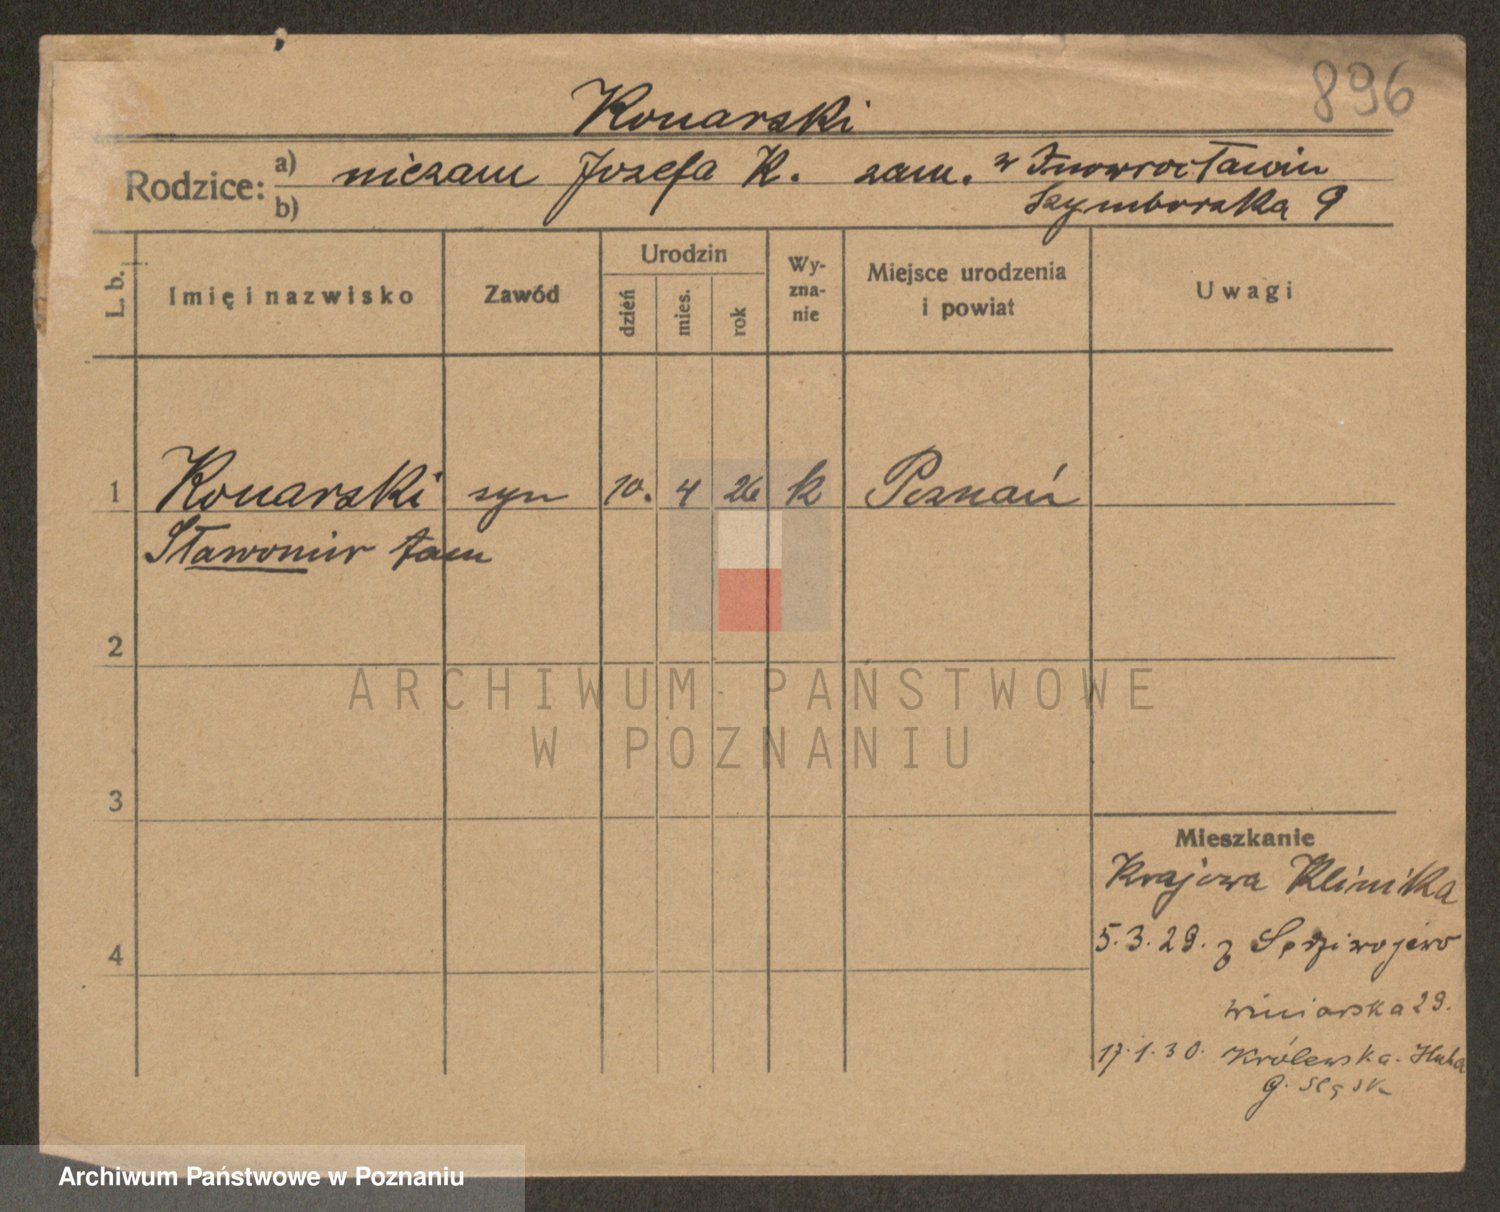 896
Konarski
Rodzice: a) niezam Jozefa K. zam. w Inowrocławiu
b) Szymborska 9
L. b.
Imię i nazwisko
Zawód
Urodzin
dzień
mies.
rok
Wy-
zna-
nie
Miejsce urodzenia
i powiat
Uwagi
1 Konarski syn 10. 4 26 k Poznań
Sławomir Jan
2
3
4
Mieszkanie
Krajowa Klinika
5.3.29. z Sędziwojewo
Winiarska 29.
17.1.30. Królewska-Huta
G. Śląsk
ARCHIWUM PAŃSTWOWE
W POZNANIU
Archiwum Państwowe w Poznaniu